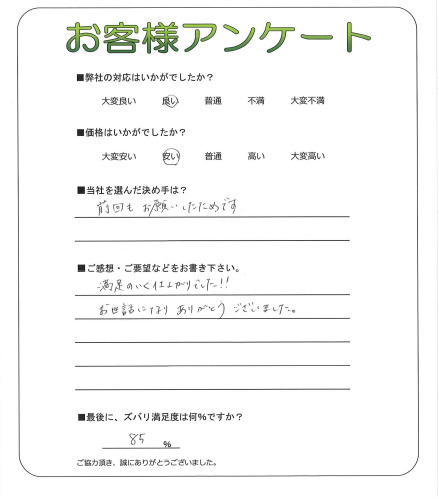 お客様アンケート
■弊社の対応はいかがでしたか?
大変良い 良い 普通 不満 大変不満
■価格はいかがでしたか?
大変安い 安い 普通 高い 大変高い
■当社を選んだ決め手は?
前回もお願いしたためです
■ご感想・ご要望などをお書き下さい。
満足のいく仕上がりでした!!
お世話になりありがとうございました。
■最後に、ズバリ満足度は何%ですか?
85 %
ご協力頂き、誠にありがとうございました。